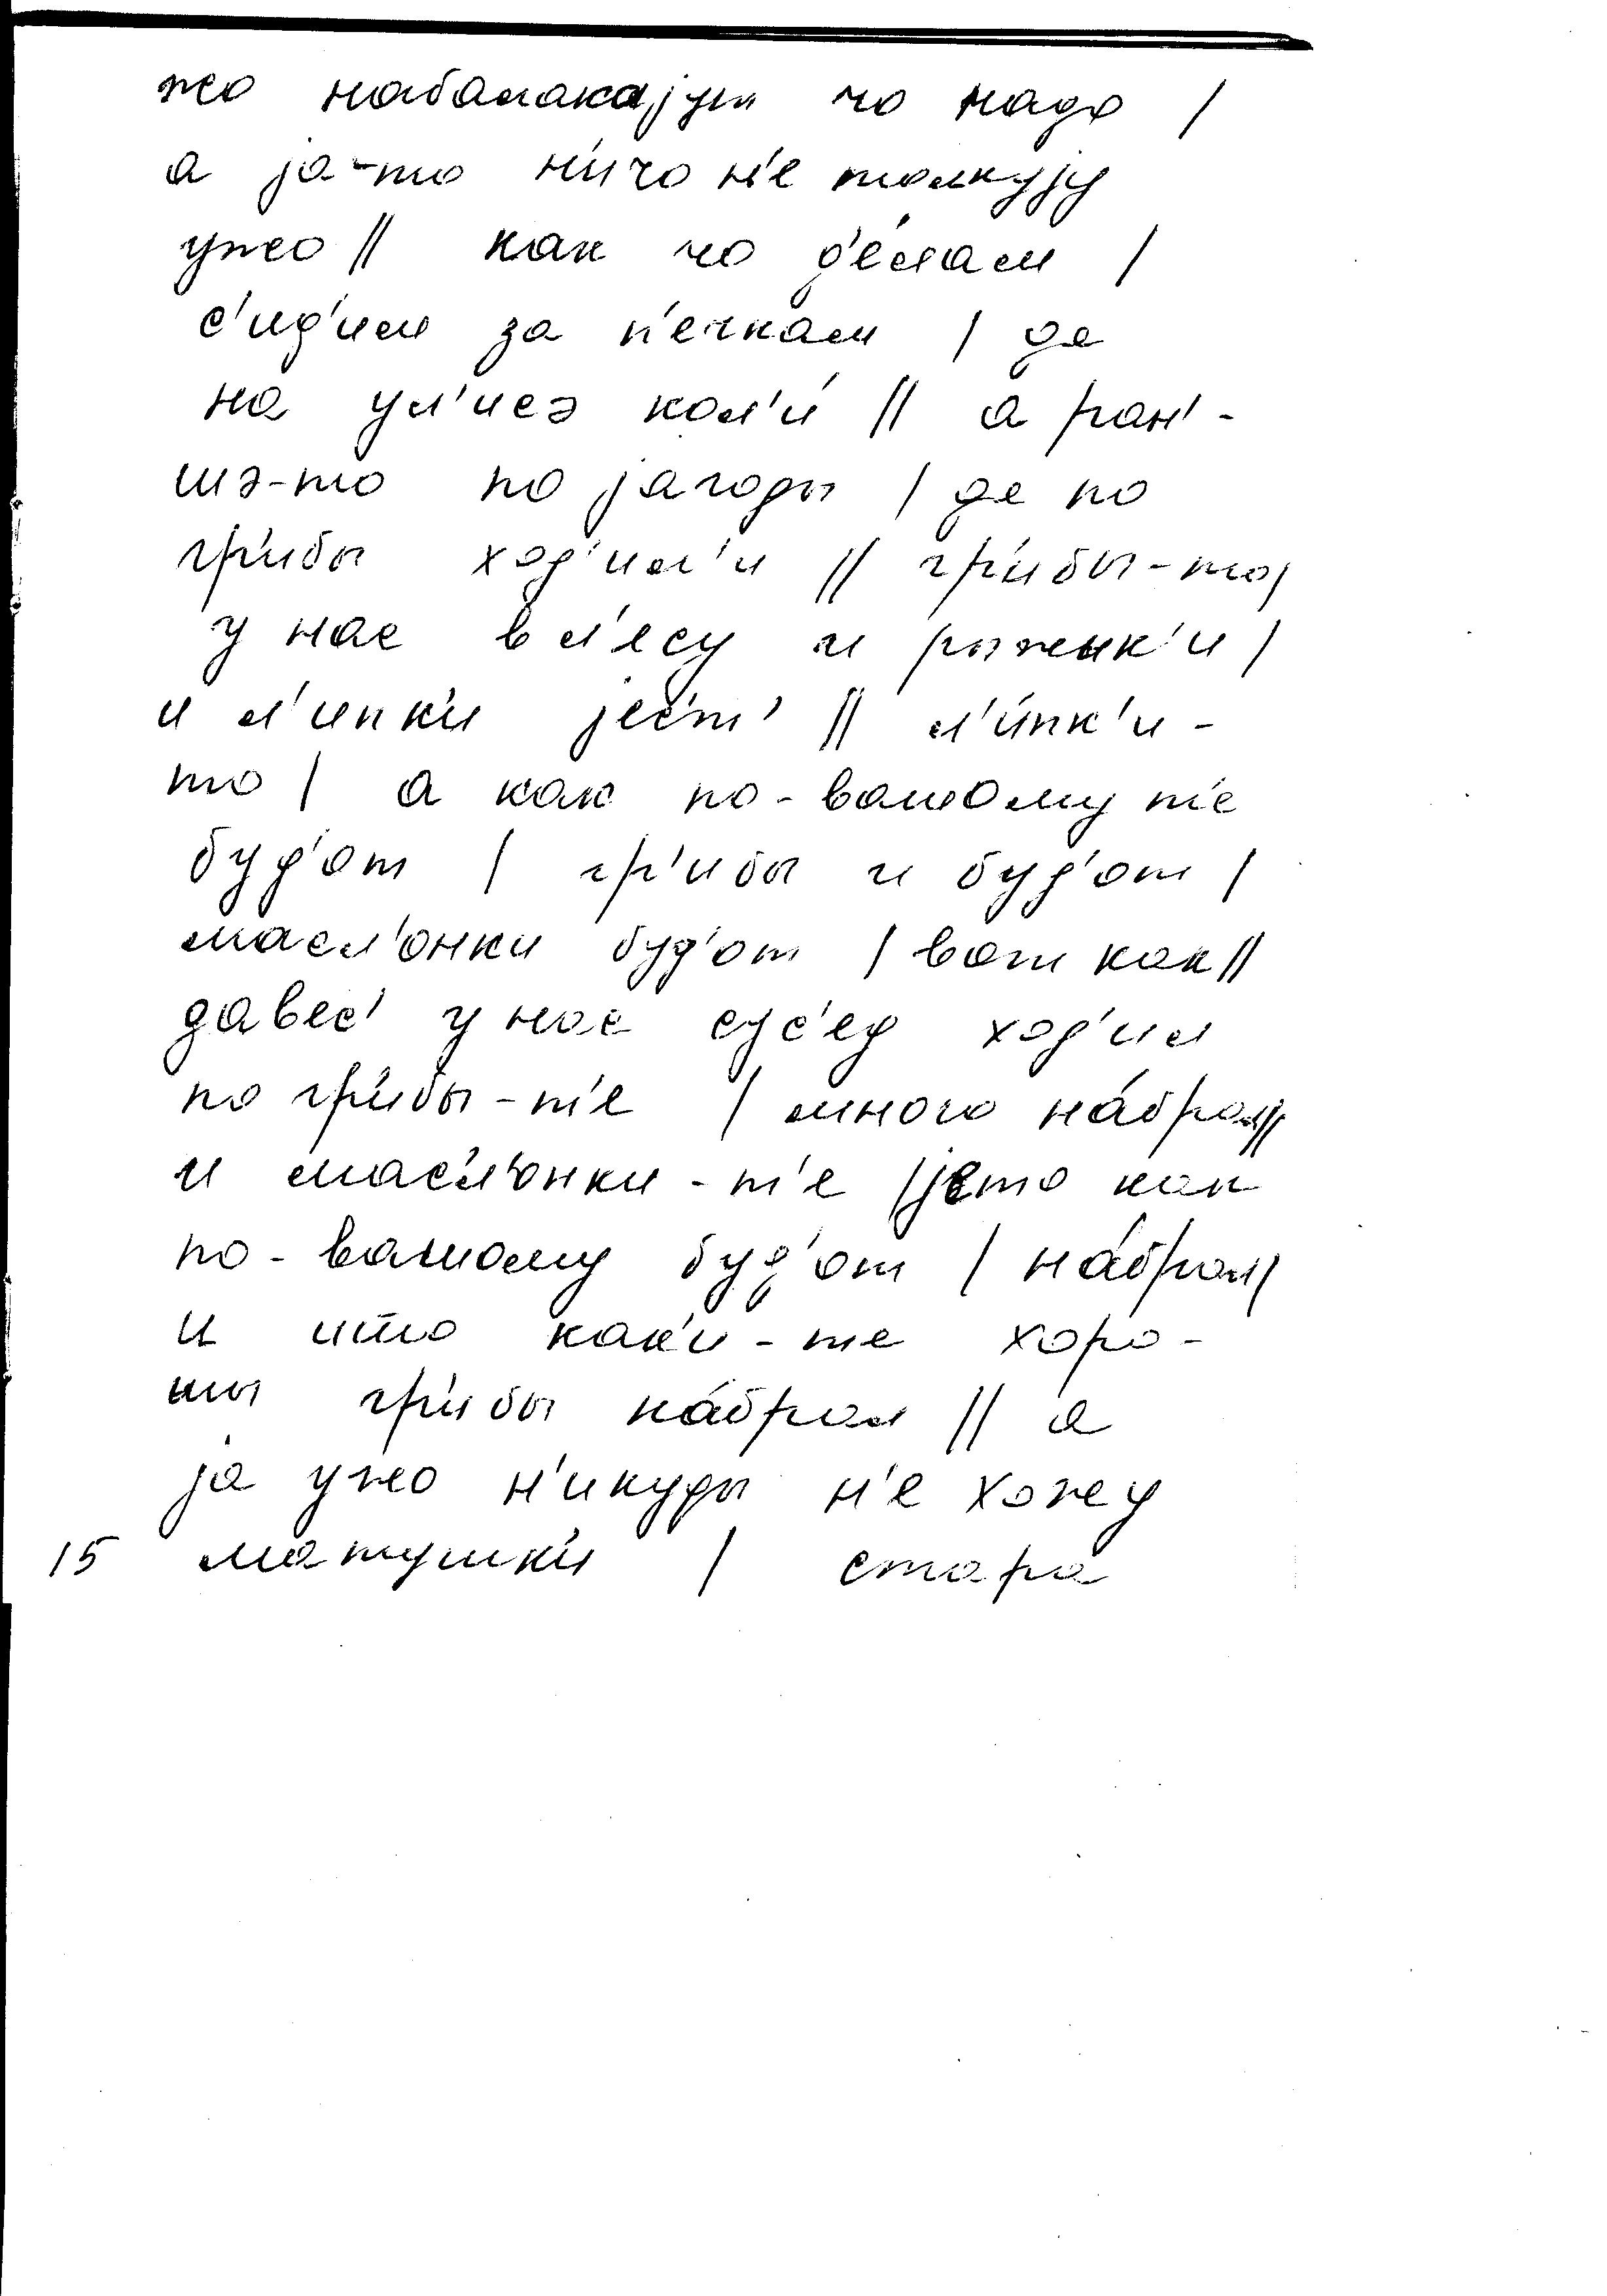 жо набалакајут чо надо |
а ја-то н'ичо н'е толкују
ужо || как чо д'елам |
с'ид'им за п'ечкам | де
на ул'исэ кол'и || а ран'-
шэ-то по јагоды | де по
гр'ибы ход'ил'и || гр'ибы-то |
у нас в л'есу и рыжык'и |
и л'ипк'и јес'т' || л'ипк'и-
то | а как по-вашому т'е
буд'от | гр'ибы и буд'от |
масл'онки буд'от | вот как ||
давес' у нас сус'ед ход'ил
по гр'ибы-т'е | много на́брал ||
и мас'л'онки-т'е | јето как
по-вашому буд'от | на́брал |
и што как'и-те хоро-
шы гр'ибы на́брал || а
ја ужо н'икуды н'е хожу
15 матушк'и | стара